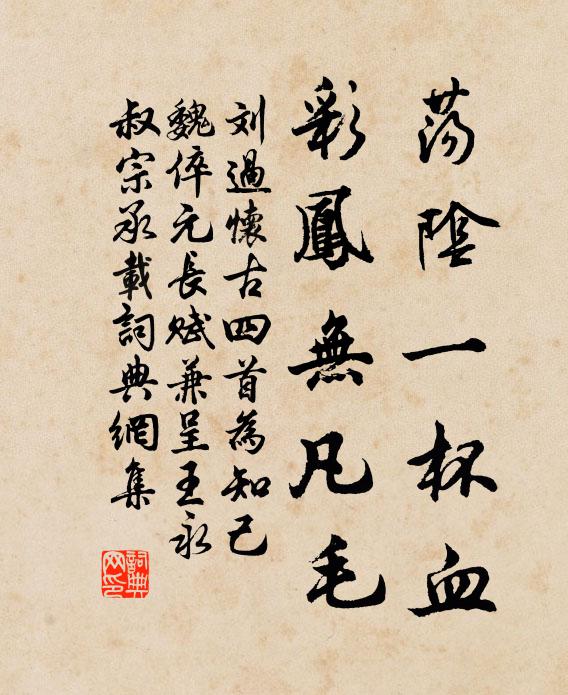 荡陰一杯血
彩鳳無凡毛
刘過懷古四首為知己
魏倅元長赋兼呈王永
叔宗丞載詞典網集
詞典网印